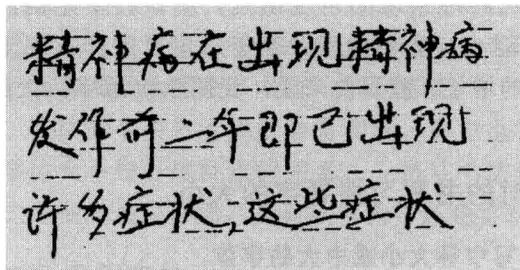 精神病在出现精神病
发作前二年即已出现
许多症状,这些症状